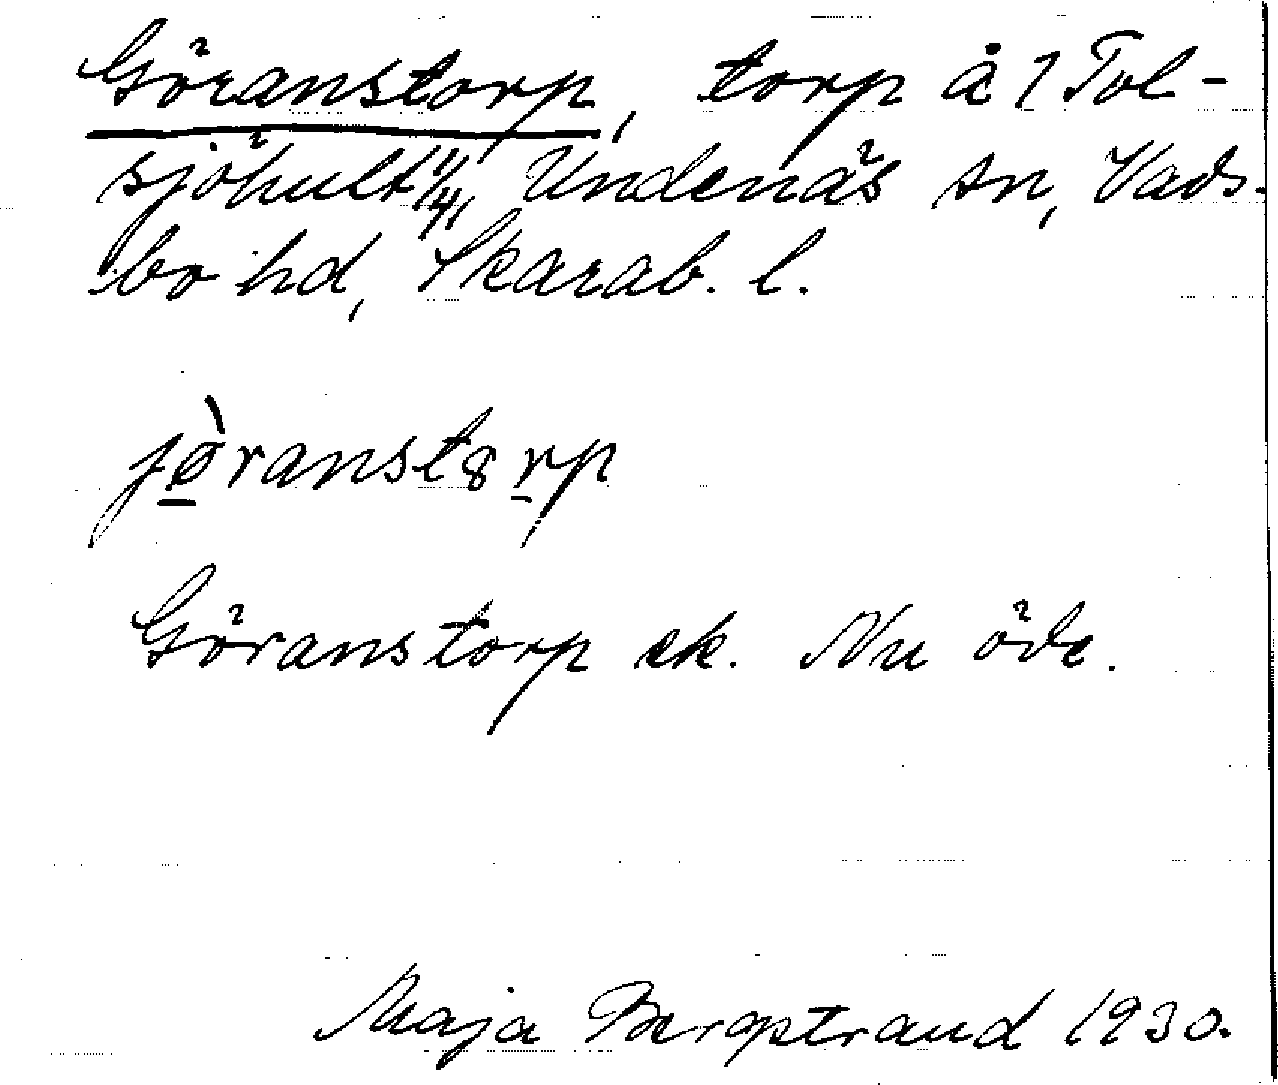 Göranstorp, torp å 1 Tol-
sjöhult 1/4, Undenäs sn, Vads-
bo hd, Skarab. l.
jø̀ranstȣrp
Göranstorp ek. Nu öde.
Maja Bergstrand 1930.